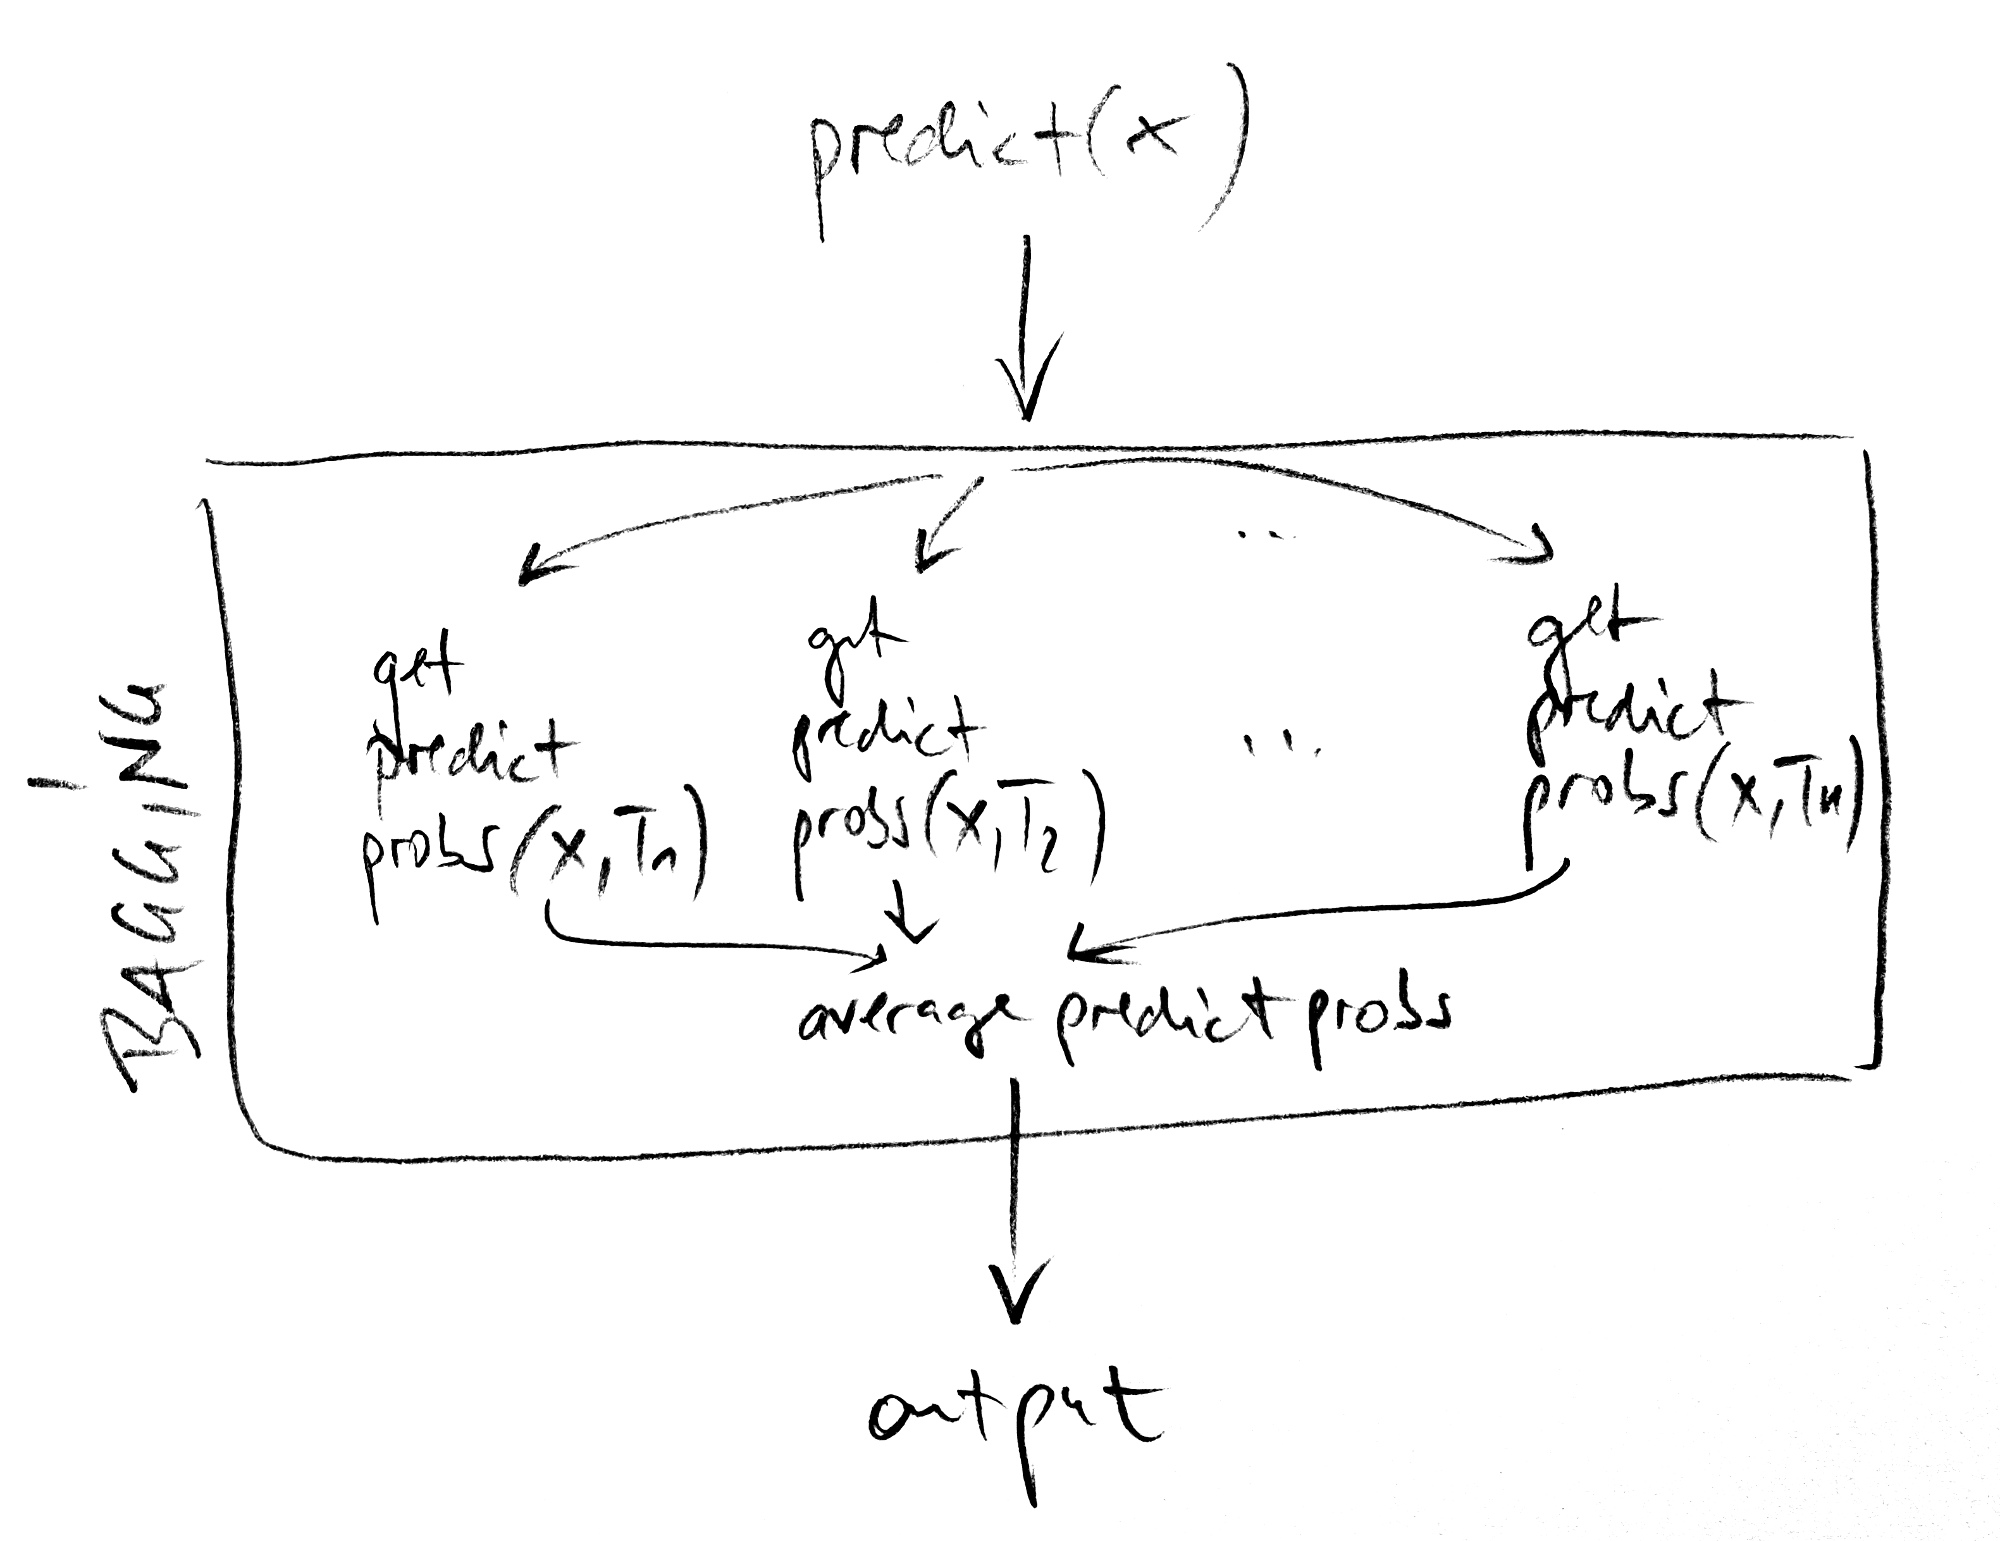 predict(x)
..
get
predict
probs(x,T1)
get
predict
probs(x,T2)
...
get
predict
probs(x,Tn)
average predict probs
output
BAGGING